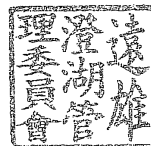 遠雄
澄湖管
理委員會